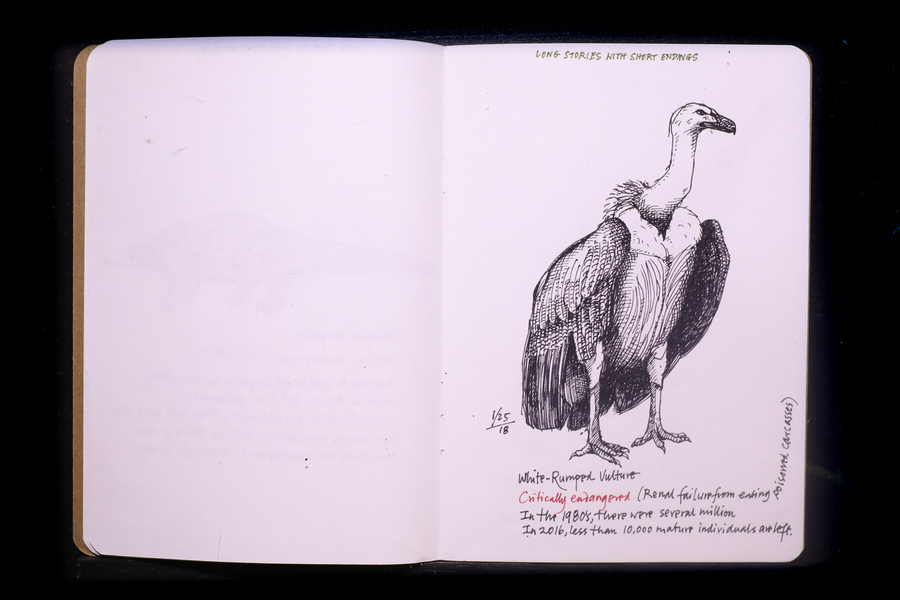 LONG STORIES WITH SHORT ENDINGS
1/25
18
White-Rumped Vulture
Critically endangered (Renal failure from eating poisoned carcasses)
In the 1980's, there were several million
In 2016, less than 10,000 mature individuals are left.